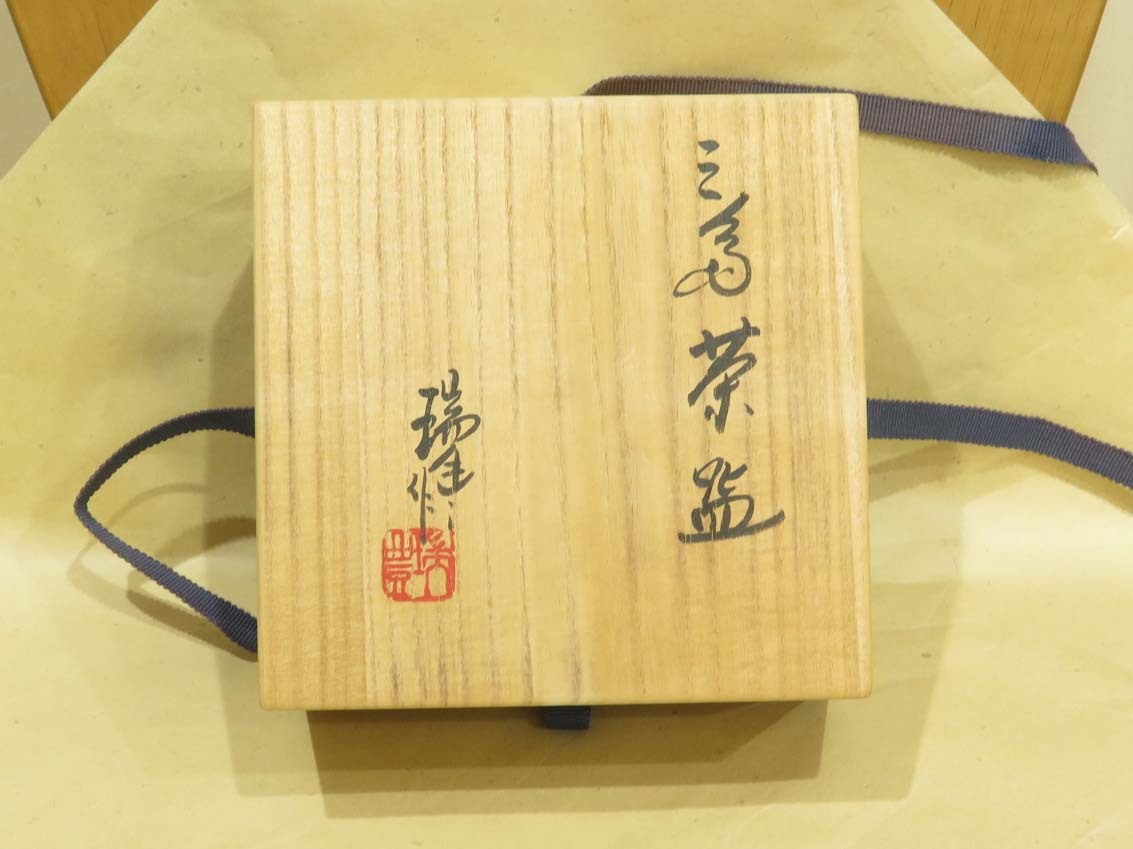 三島茶盌
瑞峰作